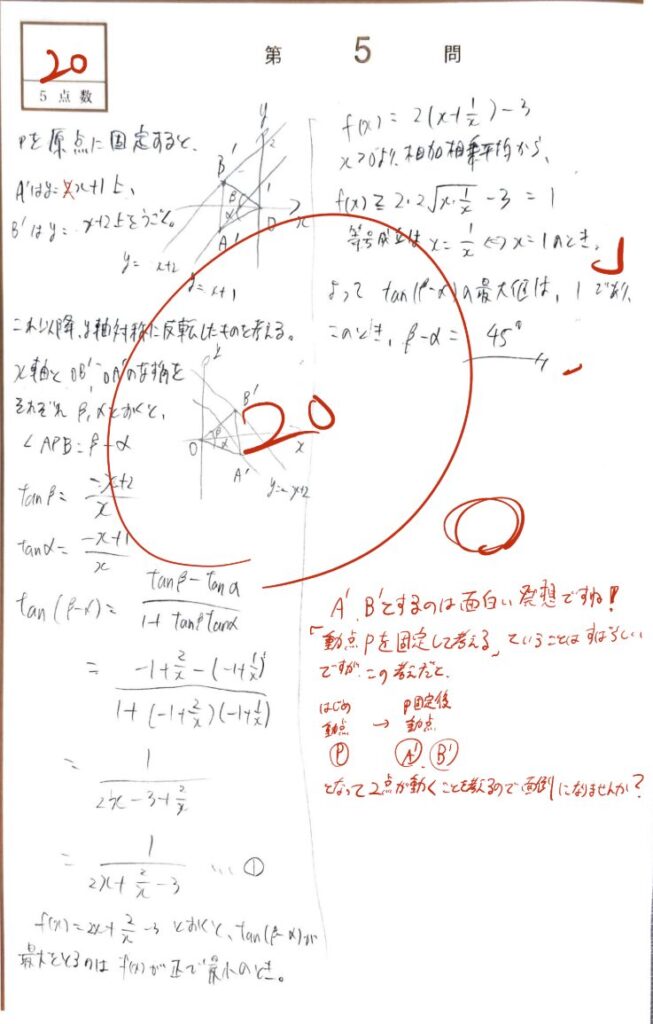 20
5 点 数
第 5 問
Pを原点に固定すると、
A'はy=x+1上、
B'はy=x+2上をうごく。
y
B'
2
1
β
α
A'
O
x
y=x+2
y=x+1
これ以降、y軸対称に反転したものを考える。
x軸とOB', OA'のなす角を
それぞれβ, αとおくと、
∠APB=β-α
y
B'
β
α
O
A'
x
y=-x+2
20
tanβ= \frac{-x+2}{x}
tanα= \frac{-x+1}{x}
tan(β-α)= \frac{tanβ-tanα}{1+tanβtanα}
= \frac{-1+\frac{2}{x}-(-1+\frac{1}{x})}{1+(-1+\frac{2}{x})(-1+\frac{1}{x})}
= \frac{1}{2x-3+\frac{2}{x}}
= \frac{1}{2x+\frac{2}{x}-3} … ①
f(x)=2x+\frac{2}{x}-3 とおくと、tan(β-α)が
最大をとるのは f(x)が正で最小のとき。
f(x)=2(x+\frac{1}{x})-3
x>0より、相加相乗平均から、
f(x)≧2・2\sqrt{x・\frac{1}{x}}-3=1
等号成立は x=\frac{1}{x}⇔x=1のとき。
よって tan(β-α)の最大値は、1であり、
このとき、β-α=45°
A', B'とするのは面白い発想ですね!
「動点Pを固定して考える」ということはすばらしい
ですが、この考えだと、
はじめ P固定後
動点 → 動点
P A' B'
となって2点が動くことを考えるので面倒になりませんか?